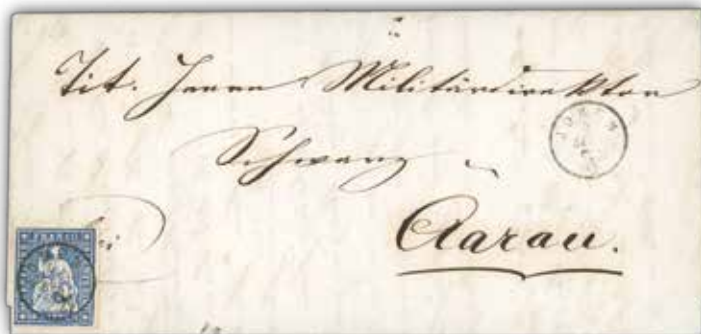 Tit. Herrn Militärdirektor
Schwarz
Aarau.